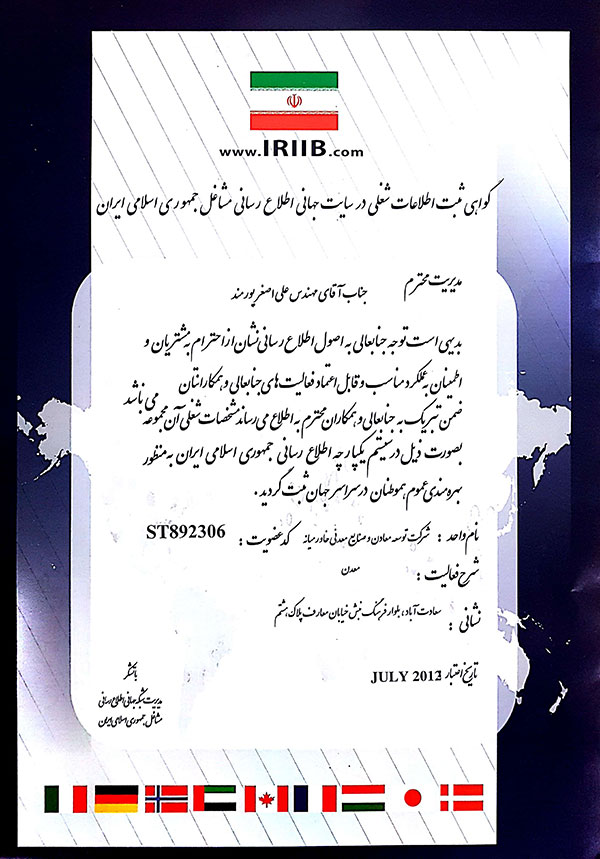 www.IRIIB.com
گواهی ثبت اطلاعات شغلی در سایت جهانی اطلاع رسانی مشاغل جمهوری اسلامی ایران
مدیریت محترم جناب آقای مهندس علی اصغر پورمند
بدیهی است توجه جنابعالی به اصول اطلاع رسانی نشان از احترام به مشتریان و
اطمینان به عملکرد مناسب و قابل اعتماد فعالیت های جنابعالی و همکارانتان می باشد
ضمن تبریک به جنابعالی و همکاران محترم به اطلاع می رساند مشخصات شغلی آن مجموعه
بصورت ذیل در سیستم یکپارچه اطلاع رسانی جمهوری اسلامی ایران به منظور
بهره مندی عموم هموطنان در سراسر جهان ثبت گردید .
نام واحد : شرکت توسعه معادن و صنایع معدنی خاورمیانه کد عضویت : ST892306
شرح فعالیت : معدن
نشانی : سعادت آباد، بلوار فرهنگ نبش خیابان معارف پلاک هشتم
تاریخ اعتبار JULY 2012
باتشکر
مدیریت شبکه جهانی اطلاع رسانی
مشاغل جمهوری اسلامی ایران